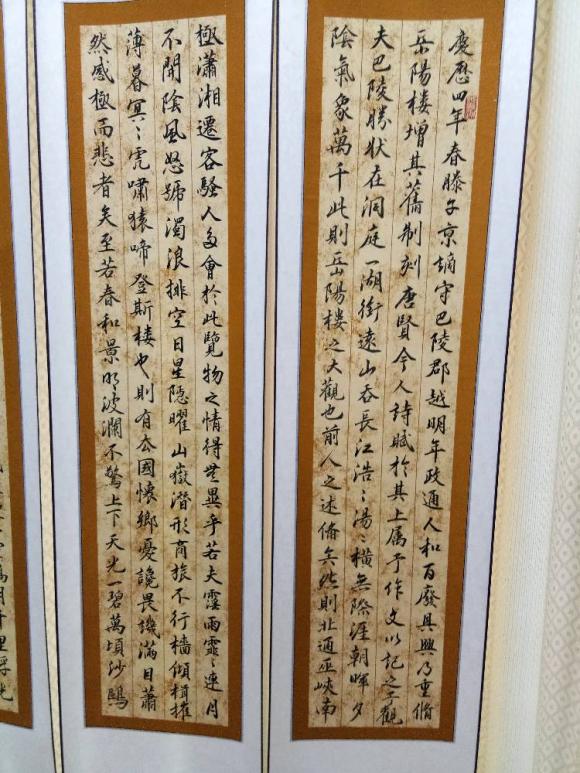 慶歷四年春滕子京謫守巴陵郡越明年政通人和百廢具興乃重脩
岳陽楼增其舊制刻唐賢今人詩賦於其上属予作文以記之予觀
夫巴陵勝狀在洞庭一湖銜遠山吞長江浩〻湯〻橫無際涯朝暉夕
陰氣象萬千此則岳陽楼之大觀也前人之述備矣然則北通巫峽南
極瀟湘遷客騷人多會於此覽物之情得無異乎若夫霪雨霏〻連月
不開陰風怒號濁浪排空日星隱曜山嶽潛形商旅不行檣傾楫摧
薄暮冥〻虎嘯猿啼登斯楼也則有去國懷鄉憂讒畏譏滿目蕭
然感極而悲者矣至若春和景明波瀾不驚上下天光一碧萬頃沙鷗